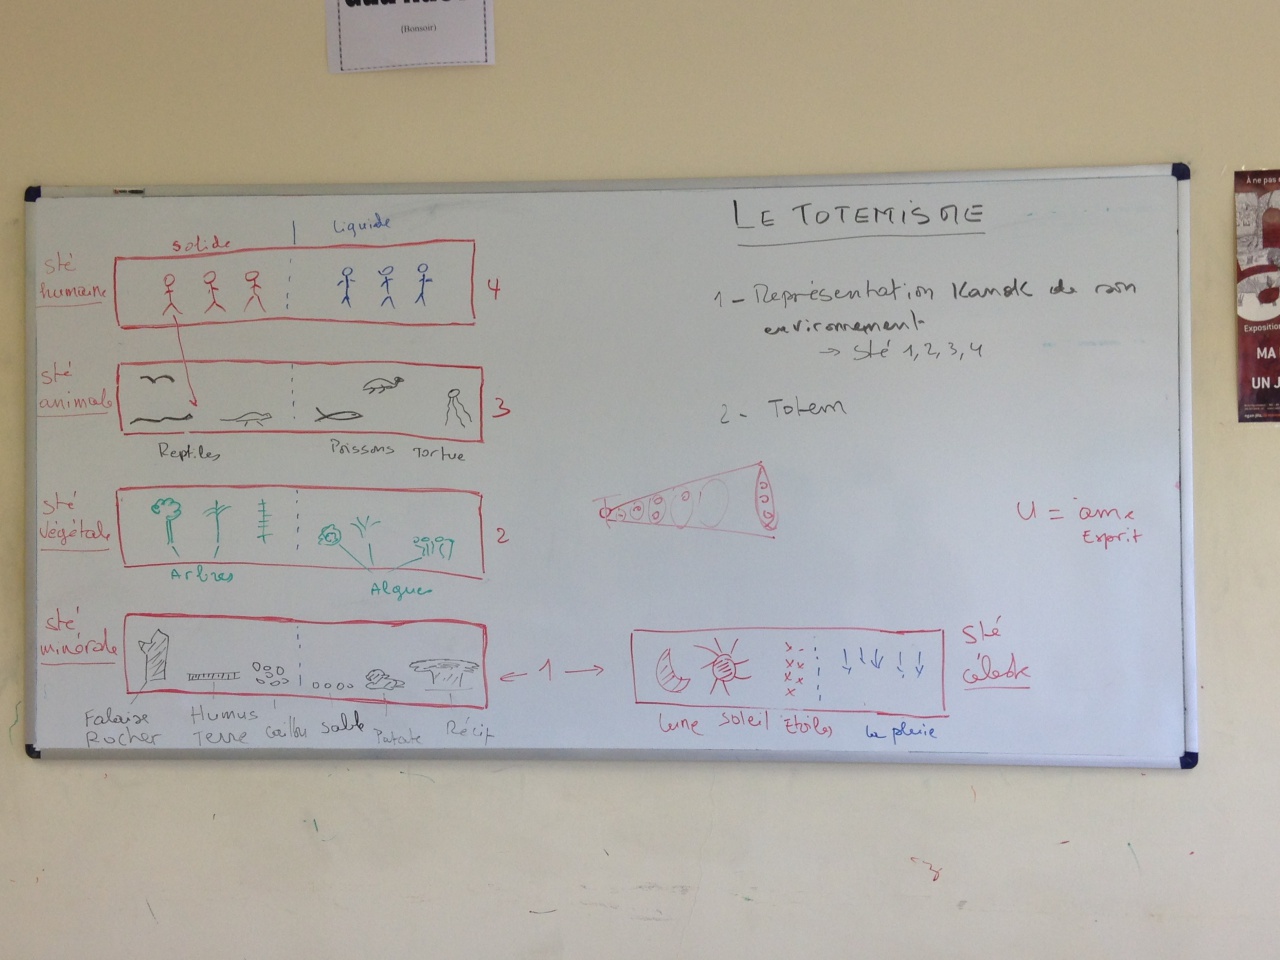 (Bonsoir)
LE TOTEMISME
1 - Représentation Kanak de son
environnement
→ sté 1, 2, 3, 4
2 - Totem
U = âme
Esprit
solide
Liquide
sté
humaine
4
sté
animale
3
Reptiles
Poissons
Tortue
sté
végétale
2
Arbres
Algues
sté
minérale
← 1 →
Falaise
Rocher
Humus
Terre
Caillou
Sable
Patate
Récif
sté
céleste
Lune
Soleil
Etoiles
La pluie
À ne pas
Exposition
MA
UN J